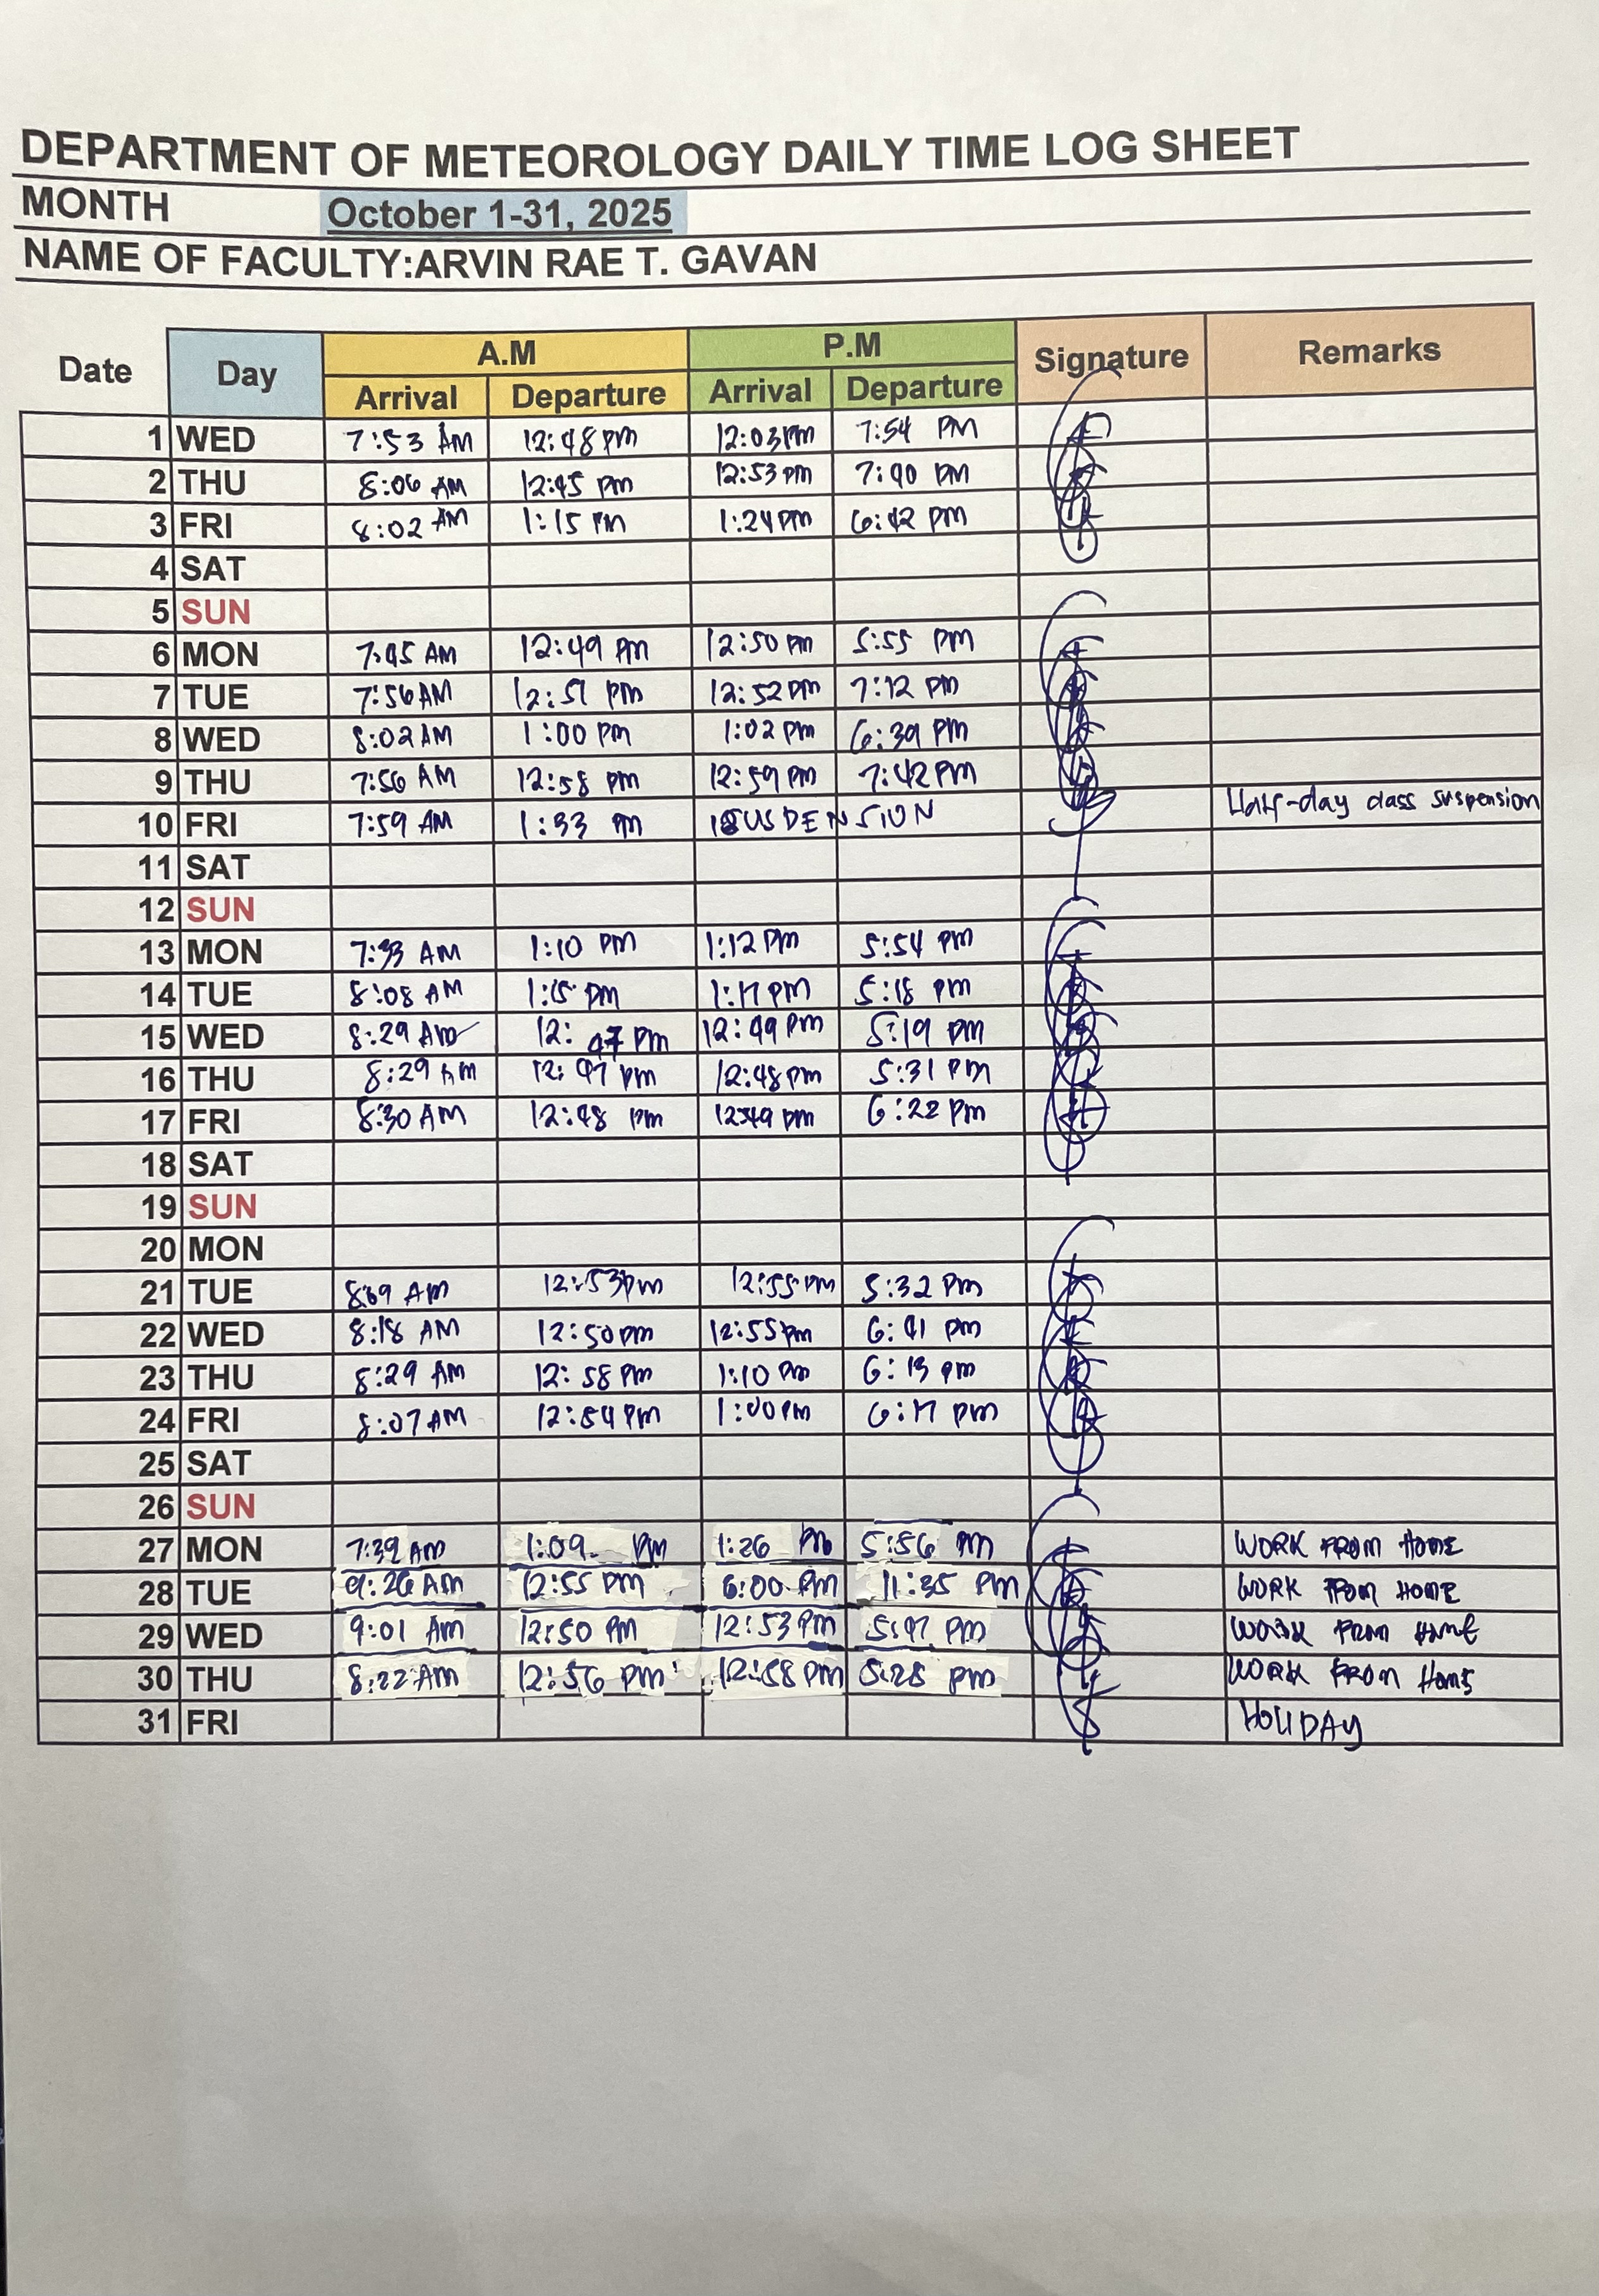 DEPARTMENT OF METEOROLOGY DAILY TIME LOG SHEET
MONTH October 1-31, 2025
NAME OF FACULTY:ARVIN RAE T. GAVAN
Date Day A.M P.M Signature Remarks
Arrival Departure Arrival Departure
1 WED 7:53 AM 12:48 pm 12:03 pm 7:54 PM
2 THU 8:06 AM 12:45 pm 12:53 pm 7:40 pm
3 FRI 8:02 AM 1:15 pm 1:24 pm 6:42 pm
4 SAT
5 SUN
6 MON 7:45 AM 12:49 pm 12:50 pm 5:55 pm
7 TUE 7:56 AM 12:51 pm 12:52 pm 7:12 pm
8 WED 8:02 AM 1:00 pm 1:02 pm 6:39 pm
9 THU 7:56 AM 12:58 pm 12:59 pm 7:42 pm
10 FRI 7:59 AM 1:33 pm SUSPENSION Half-day class suspension
11 SAT
12 SUN
13 MON 7:33 AM 1:10 pm 1:12 pm 5:54 pm
14 TUE 8:08 AM 1:15 pm 1:17 pm 5:18 pm
15 WED 8:29 AM 12:47 pm 12:49 pm 5:19 pm
16 THU 8:29 AM 12:47 pm 12:48 pm 5:31 pm
17 FRI 8:30 AM 12:48 pm 12:49 pm 6:22 pm
18 SAT
19 SUN
20 MON
21 TUE AM 12:53 pm 12:55 pm 5:32 pm
22 WED 8:18 AM 12:50 pm 12:55 pm 6:41 pm
23 THU 8:29 AM 12:58 pm 1:10 pm 6:13 pm
24 FRI 8:07 AM 12:54 pm 1:00 pm 6:17 pm
25 SAT
26 SUN
27 MON 7:39 AM 1:09 pm 1:26 pm 5:56 pm WORK FROM HOME
28 TUE 9:26 AM 12:55 pm 6:00 pm 11:35 pm WORK FROM HOME
29 WED 9:01 AM 12:50 pm 12:53 pm 5:47 pm WORK FROM HOME
30 THU 8:22 AM 12:56 pm 12:58 pm 5:25 pm WORK FROM HOME
31 FRI HOLIDAY